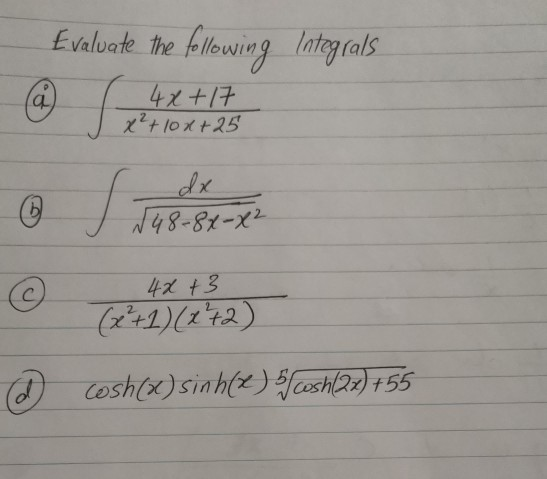 Evaluate the following Integrals
(a) ∫ (4x+17)/(x²+10x+25)
(b) ∫ dx/√(48-8x-x²)
(c) (4x+3)/((x²+1)(x²+2))
(d) cosh(x) sinh(x) ⁵√(cosh(2x)+55)